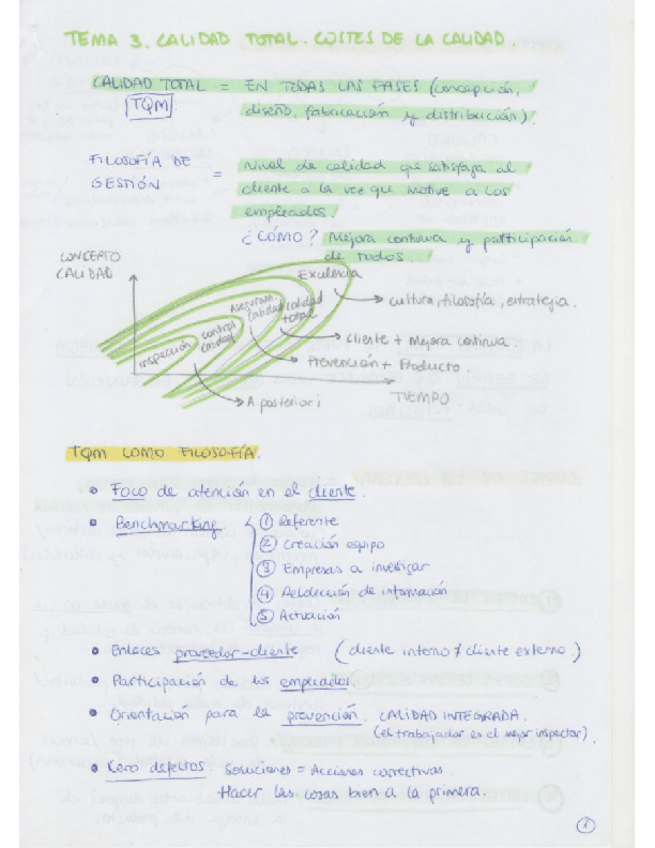 TEMA 3. CALIDAD TOTAL. COSTES DE LA CALIDAD.
CALIDAD TOTAL = EN TODAS LAS FASES (concepción,
TQM diseño, fabricación y distribución).
FILOSOFÍA DE GESTIÓN = Nivel de calidad que satisfaga al
cliente a la vez que motive a los
empleados.
¿CÓMO? Mejora continua y participación
de todos.
CONCEPTO
CALIDAD
Excelencia
Aseguram. calidad
calidad total
control calidad
inspección
cultura, filosofía, estrategia.
Cliente + Mejora continua.
Prevención + Producto.
A posteriori
TIEMPO
TQM COMO FILOSOFÍA.
• Foco de atención en el cliente.
• Benchmarking
① Referente
② Creación equipo
③ Empresas a investigar
④ información
⑤ Actuación
• Enlaces proveedor-cliente (cliente interno ≠ cliente externo.)
• Participación de los empleados
• Orientación para la prevención. CALIDAD INTEGRADA.
(el trabajador es el mejor inspector).
• Cero defectos. Soluciones = Acciones correctivas.
Hacer las cosas bien a la primera.